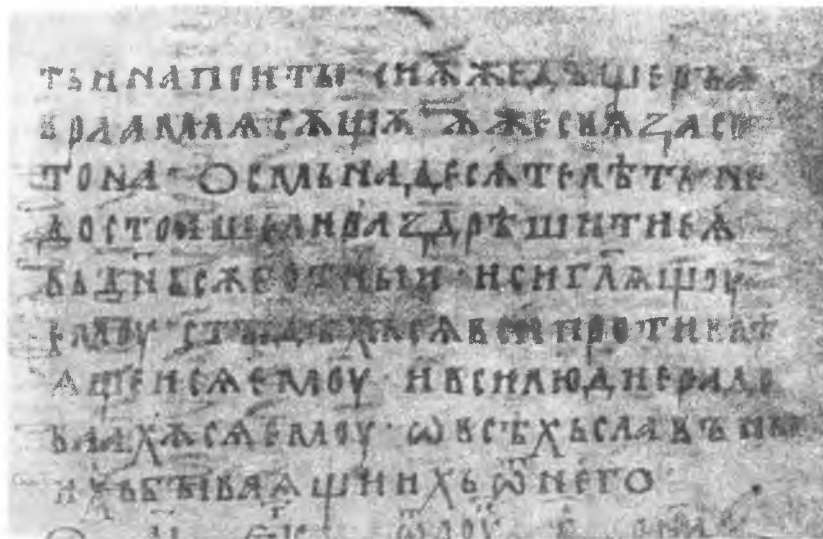 тьи напоити · сиѫ же дъщерь а
враамлѧ сѫщѫ ѫже сьвѧза со
тона · осмьнадесѧте лѣть не
достоꙗше ли раздрѣшити еѧ
въ дн҃ь сѫботныи · и си гл҃ѫщоу
емоу · стыдѣхѫ сѧ вьси противлѣ
ѫщеи сѧ емоу и вси людие радо
ваахѫ сѧ емоу · ѡ всѣхъ славъны
ихъ бывѫѫщиихъ ѿ него